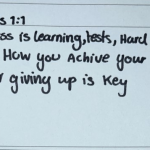 s 1:1
ss is learning, tests, Hard
How you Achive your
giving up is key